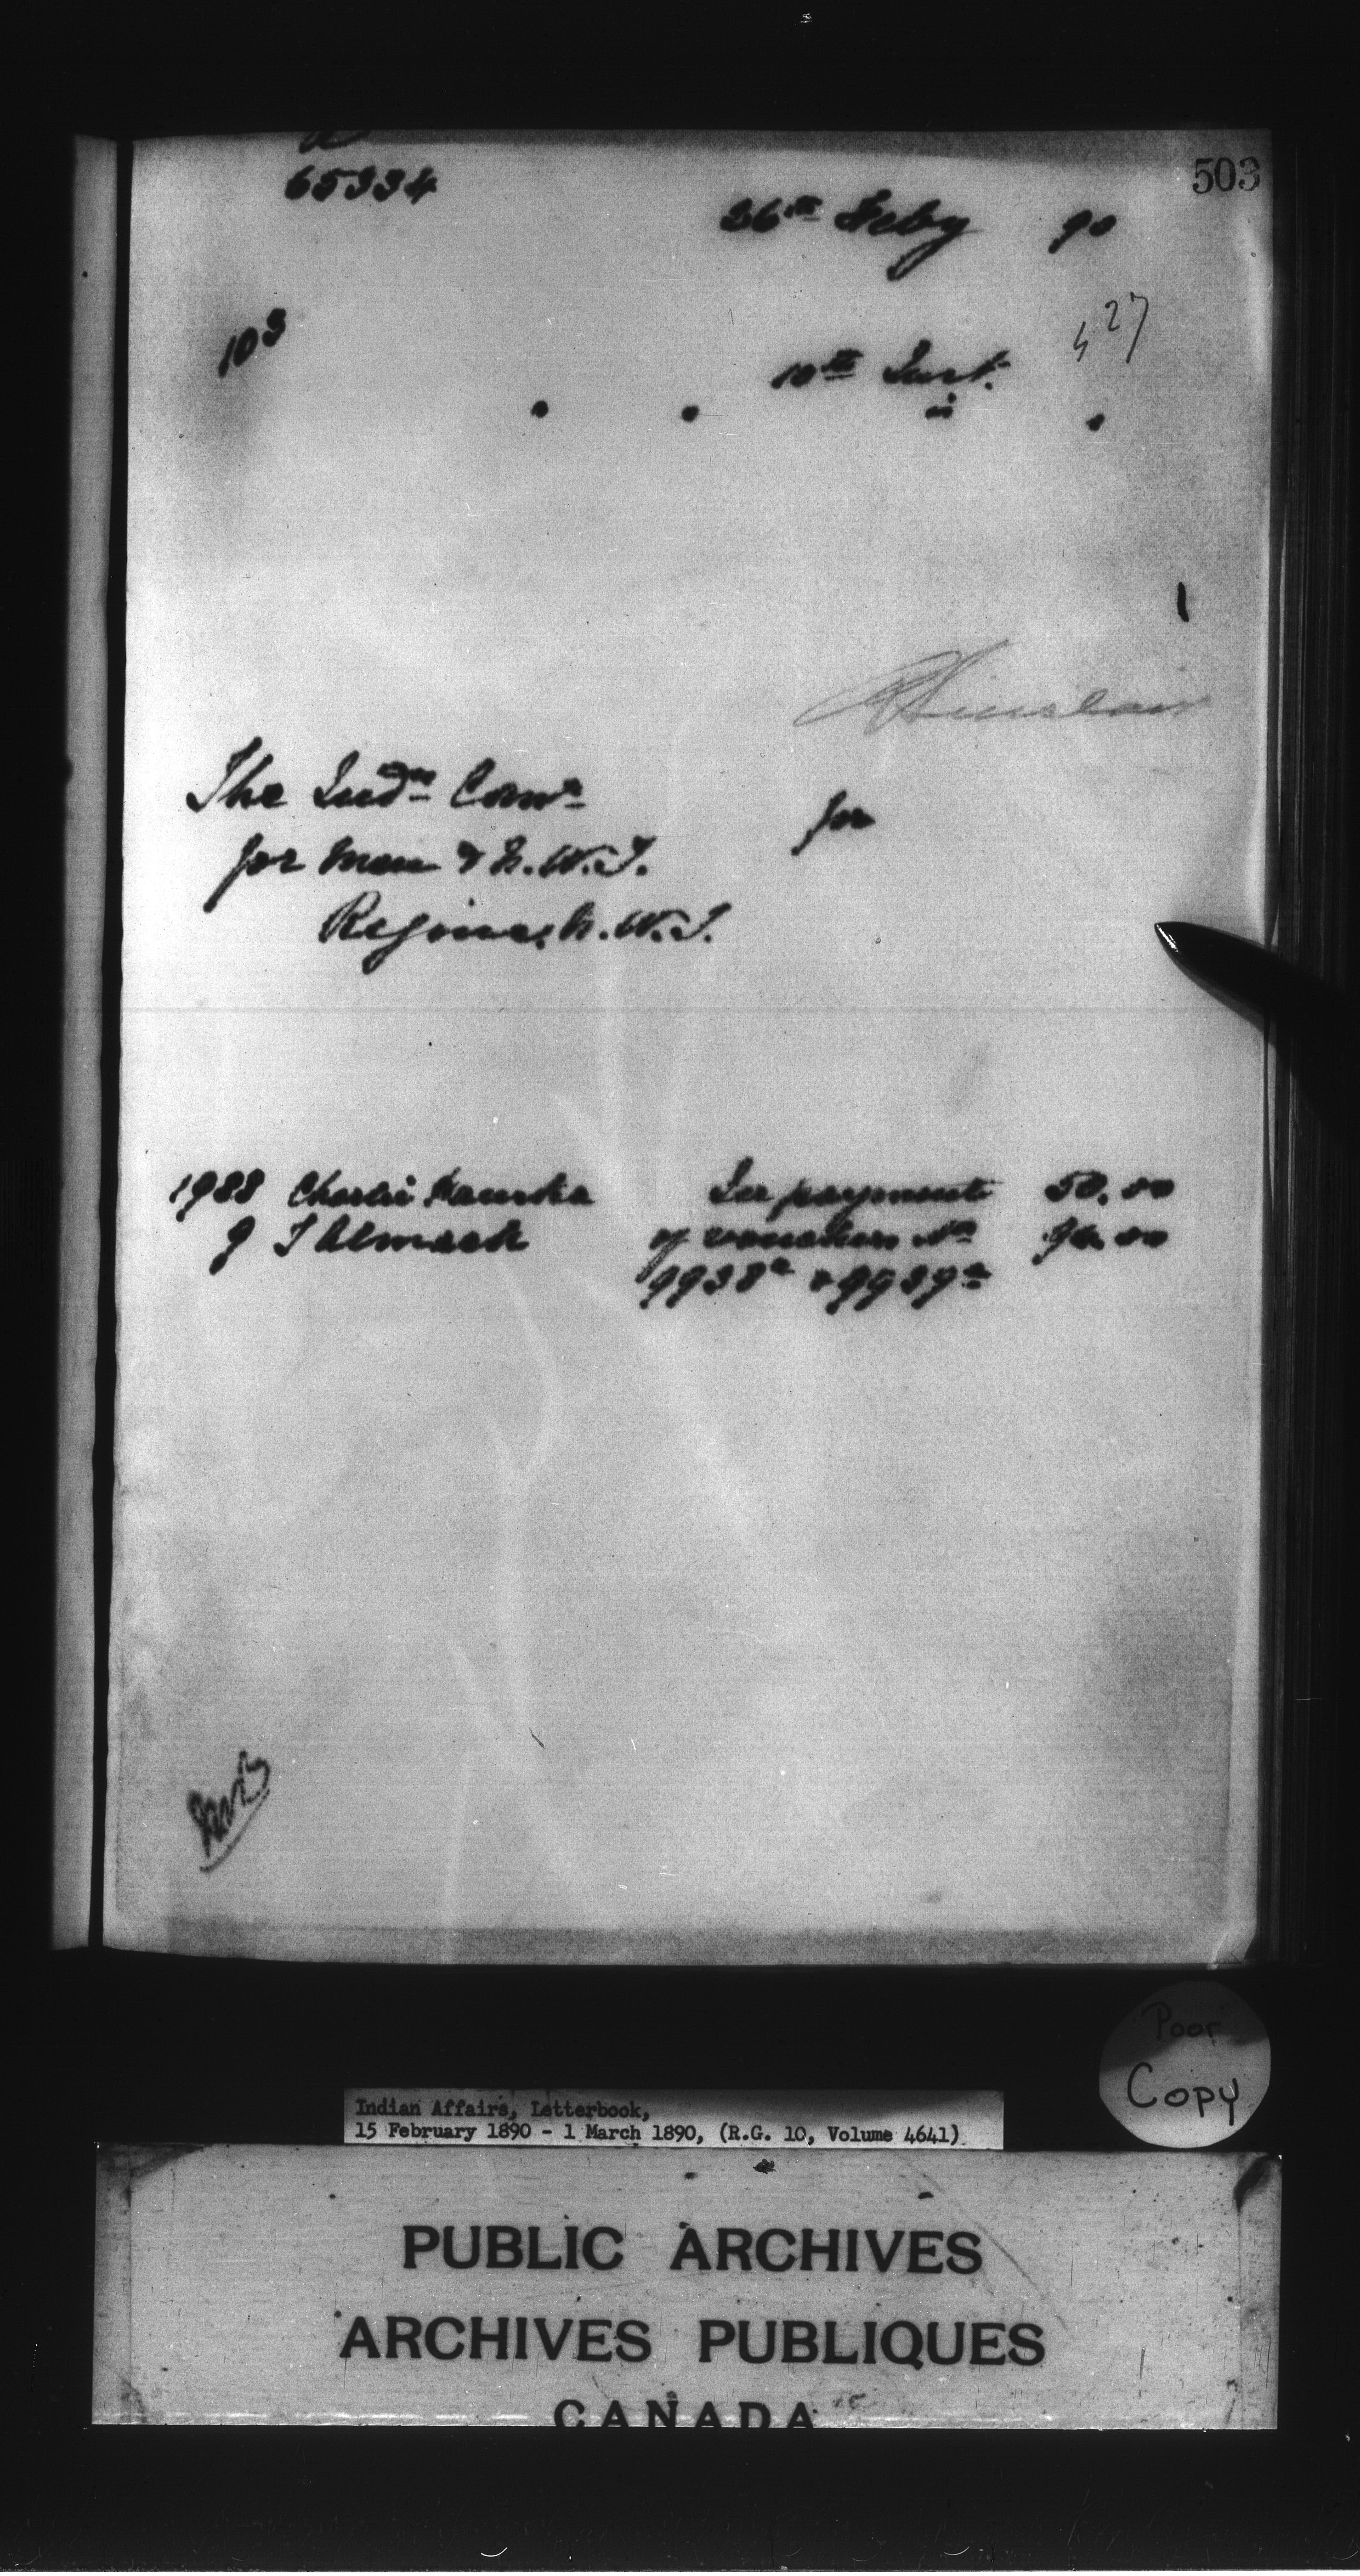 503
65334
26th Feby 90
527
103
10th Inst.
The Indn Comr
for
for Man & N.W.T.
Regina, N.W.T.
1988 Charlie In payment 50.00
9 J of vouchers No 90.00
9938a & 9939a
Poor
Copy
Indian Affairs, Letterbook,
15 February 1890 - 1 March 1890, (R.G. 10, Volume 4641)
PUBLIC ARCHIVES
ARCHIVES PUBLIQUES
CANADA